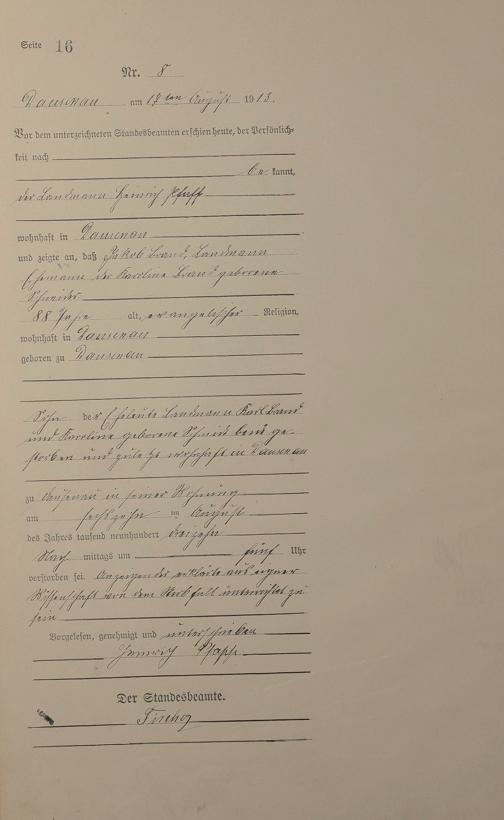 Seite 16
Nr. 8
Dausenau am 17ten August 1913.
Vor dem unterzeichneten Standesbeamten erschien heute, der Persönlich-
keit nach
be kannt,
der Landmann Heinrich Pfaff
wohnhaft in Dausenau
und zeigte an, daß Jakob Brand, Landmann
Ehemann der Karoline Brand geborene
Schneider
88 Jahre alt, evangelischer Religion,
wohnhaft in Dausenau
geboren zu Dausenau
Sohn der Eheleute Landmann Karl Brand
und Karoline geborene Schmidt beide ge-
storben und zuletzt wohnhaft in Dausenau
zu Dausenau in seiner Wohnung
am sechszehn ten August
des Jahres tausend neunhundert dreizehn
Nach mittags um fünf Uhr
verstorben sei. Anzeigender erklärte aus eigner
Wissenschaft von dem Sterbfall unterrichtet zu
sein
Vorgelesen, genehmigt und unterschrieben
Heinrich Pfaff
Der Standesbeamte.